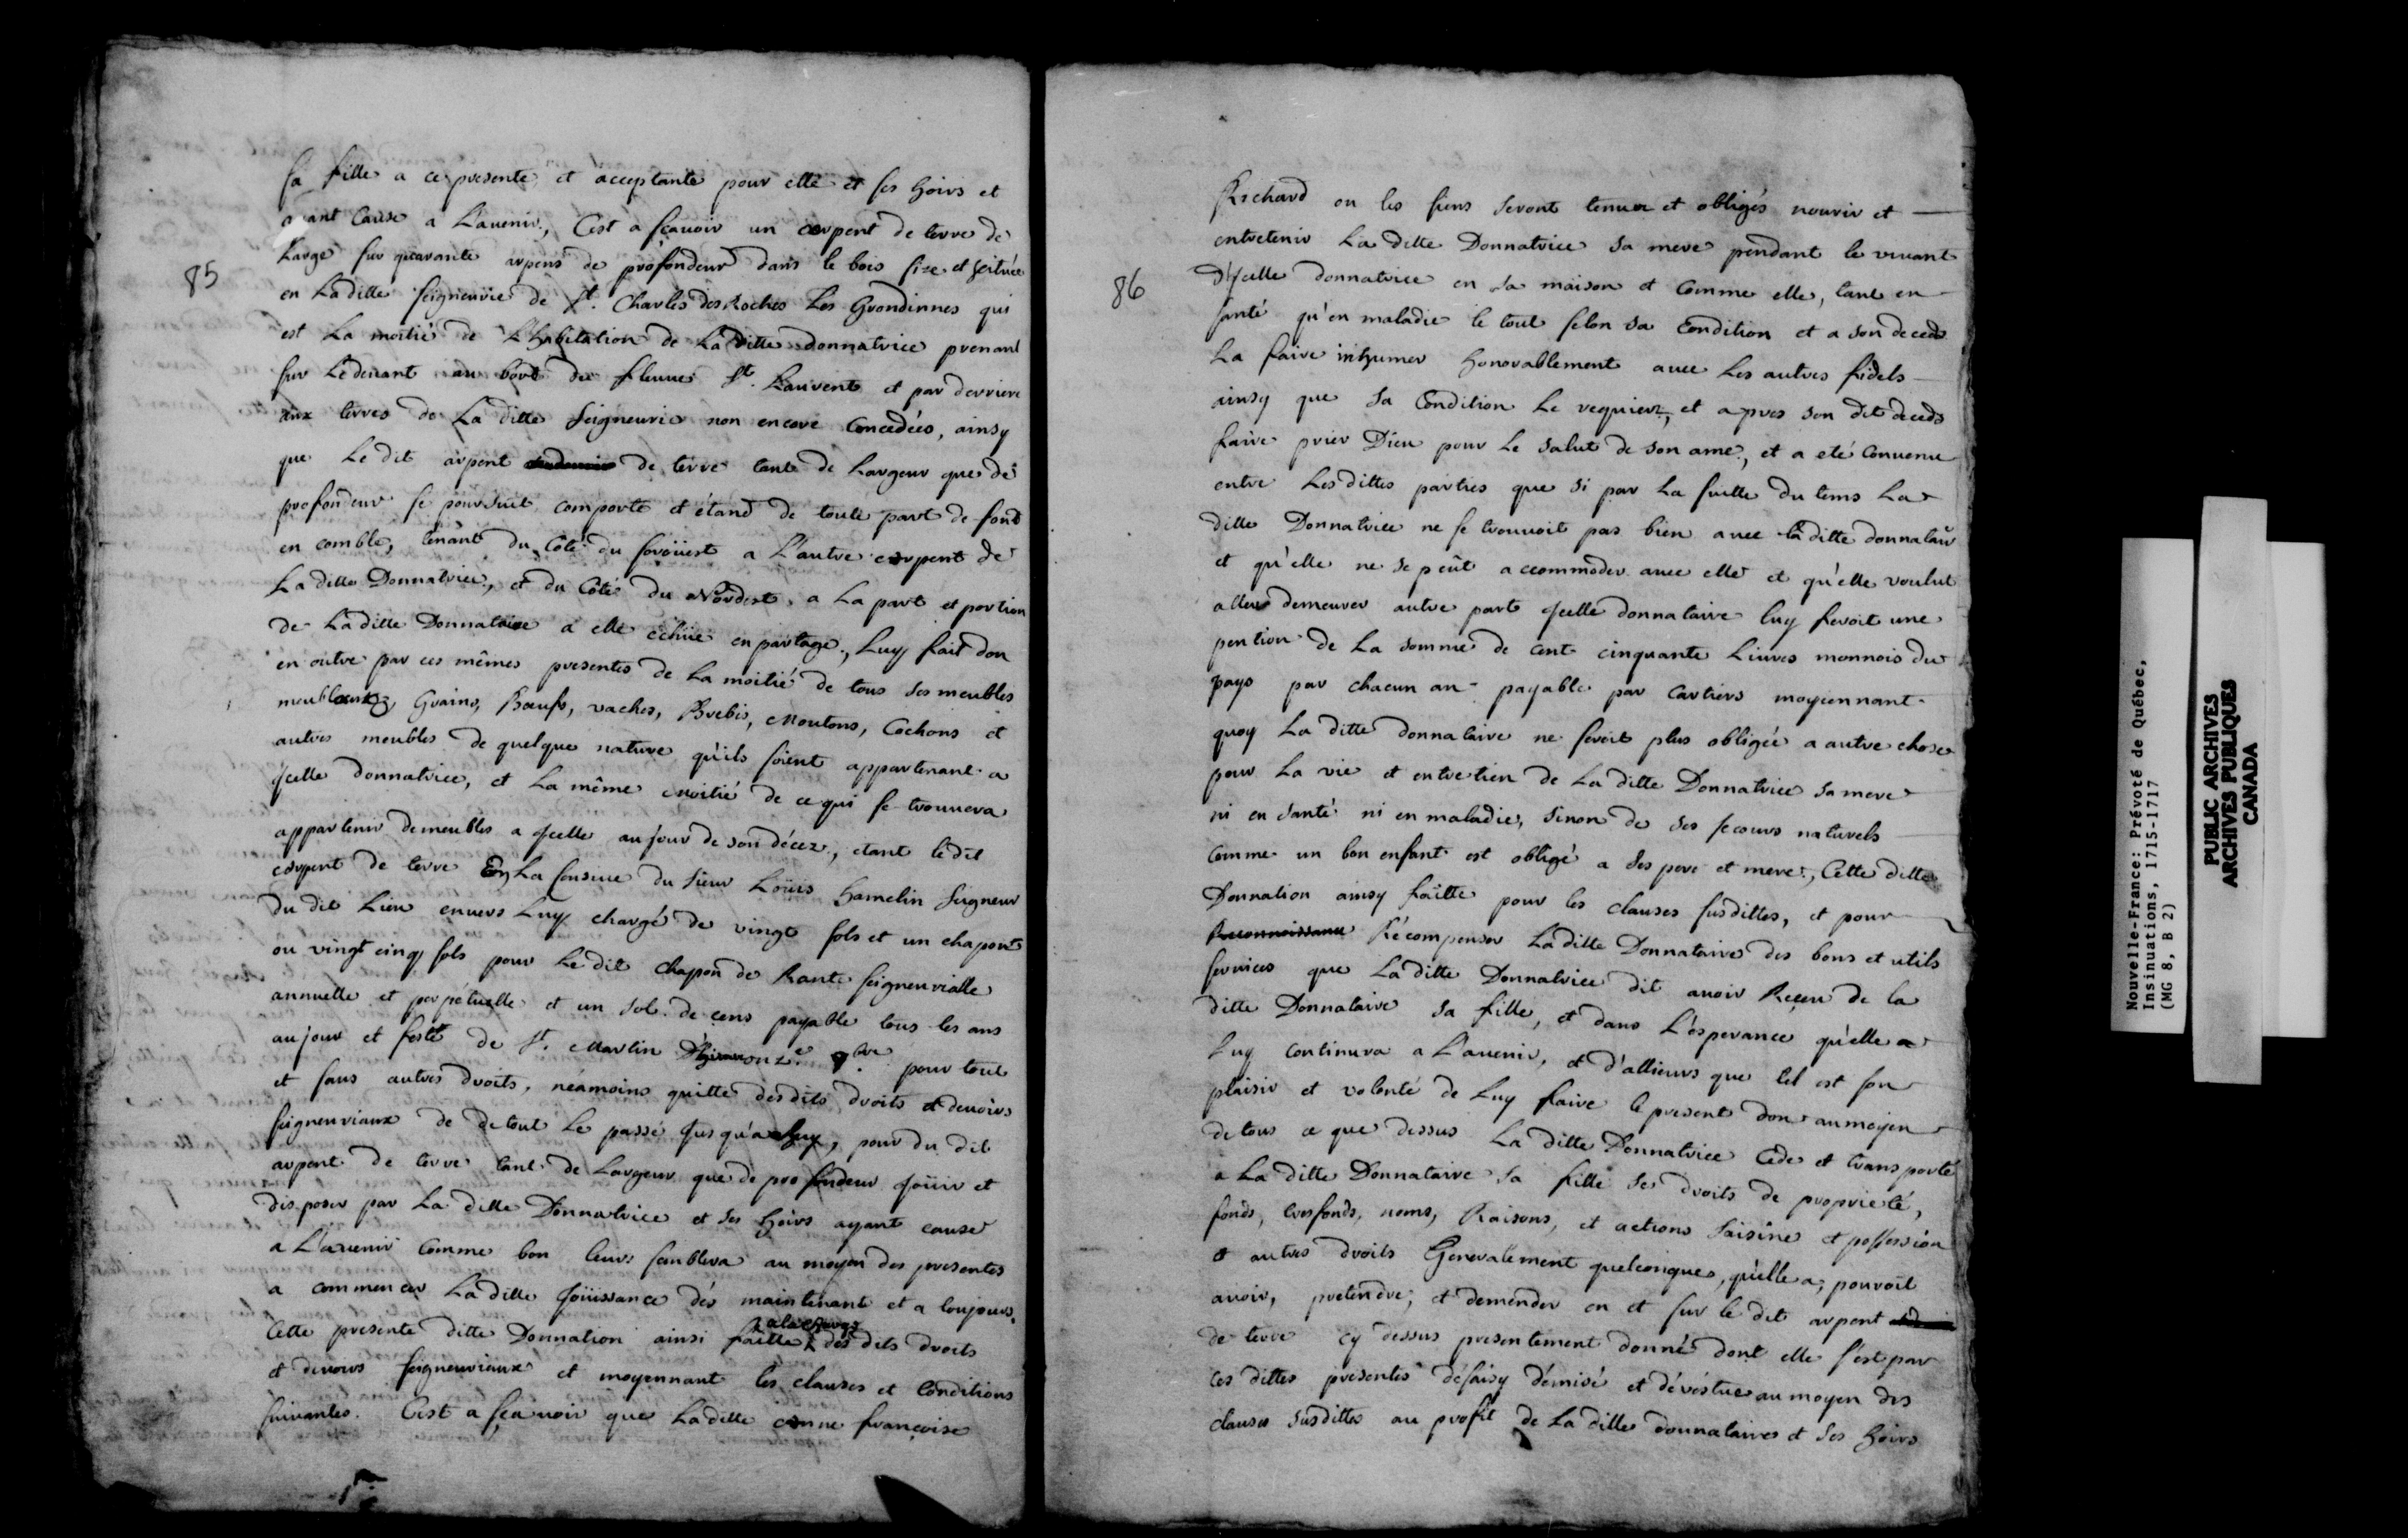 85
sa fille a ce presente, et acceptante pour elle et ses hoirs et
ayant Cause a L'auenir, C'est a sçauoir un arpent de terre de
Large sur quarante arpens de profondeur dans le bois size et scituée
en Laditte seigneurie de St. Charles des Roches Les Grondinnes qui
est La moitié de L'habitation de La ditte donnatrice prenant
sur Ledeuant au bord du fleuue St. Laurent et par derriere
aux terres de La ditte Seigneurie non encore Concedées, ainsy
que Le dit arpent de terre tant de Largeur que de
profondeur se poursuit comporte et étand de toute part de fond
en comble, tenant du Côté du soroüest a L'autre arpent de
La ditte Donnatrice, et du Côté du Nordest, a La part et portion
de Laditte Donnataire a elle echüe en partage, Luy fait don
en outre par ces mêmes presentes de La moitié de tous ses meubles
meublantz, Grains, Bœufs, vaches, Brebis, Moutons, Cochons et
autres meubles de quelque nature qu'ils soient appartenant a
jcelle donnatrice, et La même moitié de ce qui se trouuera
appartenir de meubles a jcelle au jour de son décez, etant le dit
arpent de terre En La Censiue du Sieur Loüis Hamelin Seigneur
du dit Lieu enuers Luy chargé de vingt sols et un chapont
ou vingt cinq sols pour Le dit chapon de Rante seigneurialle
annuelle et perpétuelle et un sol de cens payable tous les ans
au jour et feste de St. Martin onze 9bre pour tout
et sans autres droits, néamoins quitte desdits droits et deuoirs
seigneuriaux de de tout Le passé jusqu'a huy, pour du dit
arpent de terre tant de Largeur que de profondeur joüir et
disposer par La ditte Donnatrice et ses hoirs ayant cause
a L'auenir Comme bon leur semblera au moyen des presentes
a commencer La ditte joüissance dés maintenant et a toujours.
a la charge
Cette presente ditte Donnation ainsi faitte des dits droits
et deuoirs seigneuriaux et moyennant les clauses et Conditions
suiuantes. C'est a sçauoir que Laditte anne françoise
86
Richard ou les siens seront tenus et obligés nourir et
entretenir La ditte Donnatrice sa mere pendant le viuant
d'jcelle donnatrice en sa maison et Comme elle, tant en
santé qu'en maladie le tout selon sa Condition et a son deceds
La faire inhumer honorablement auec Les autres fidels
ainsy que sa Condition Le requiert, et apres son dit deceds
faire prier Dieu pour Le Salut de son ame, et a eté Conuenu
entre Lesdittes parties que si par La suitte du tems La
ditte Donnatrice ne se trouuoit pas bien auec la ditte donnatair
et qu'elle ne se peût accommoder auec elle et qu'elle voulut
aller demeurer autre part jcelle donnataire luy feroit une
pention de La somme de cent cinquante Liures monnois du
pays par chacun an payable par Cartiers moyennant
quoy La ditte donnataire ne seroit plus obligée a autre chose
pour La vie et entretien de La ditte Donnatrice sa mere
ni en santé ni en maladie, sinon de ses secours naturels
Comme un bon enfant est obligé a ses pere et mere, Cette ditte
Donnation ainsy faitte pour les clauses susdittes, et pour
Reconnoissance Récompenser Laditte Donnataire des bons et utils
seruices que La ditte Donnatrice dit auoir Reçeu de la
ditte Donnataire sa fille, et dans L'ésperance qu'elle
Luy continura a L'auenir, et d'allieurs que tel est son
plaisir et volonté de Luy faire le present don au moyen
de tous ce que dessus La ditte Donnatrice Cede et transporte
a La ditte Donnataire sa fille ses droits de proprieté,
fonds, tresfonds, noms, Raisons, et actions Saisine et possession
et autres droits Generalement quelconques, qu'elle a, pouroit
auoir, pretendre, et demender en et sur le dit arpent
de terre cy dessus presentement donné dont elle s'est par
ces dittes presentes désaisy démisé et dévéstue au moyen des
clauses susdittes au profit de La ditte donnataire et ses hoirs
Nouvelle-France: Prévoté de Québec,
Insinuations, 1715-1717
(MG 8, B 2)
PUBLIC ARCHIVES
ARCHIVES PUBLIQUES
CANADA